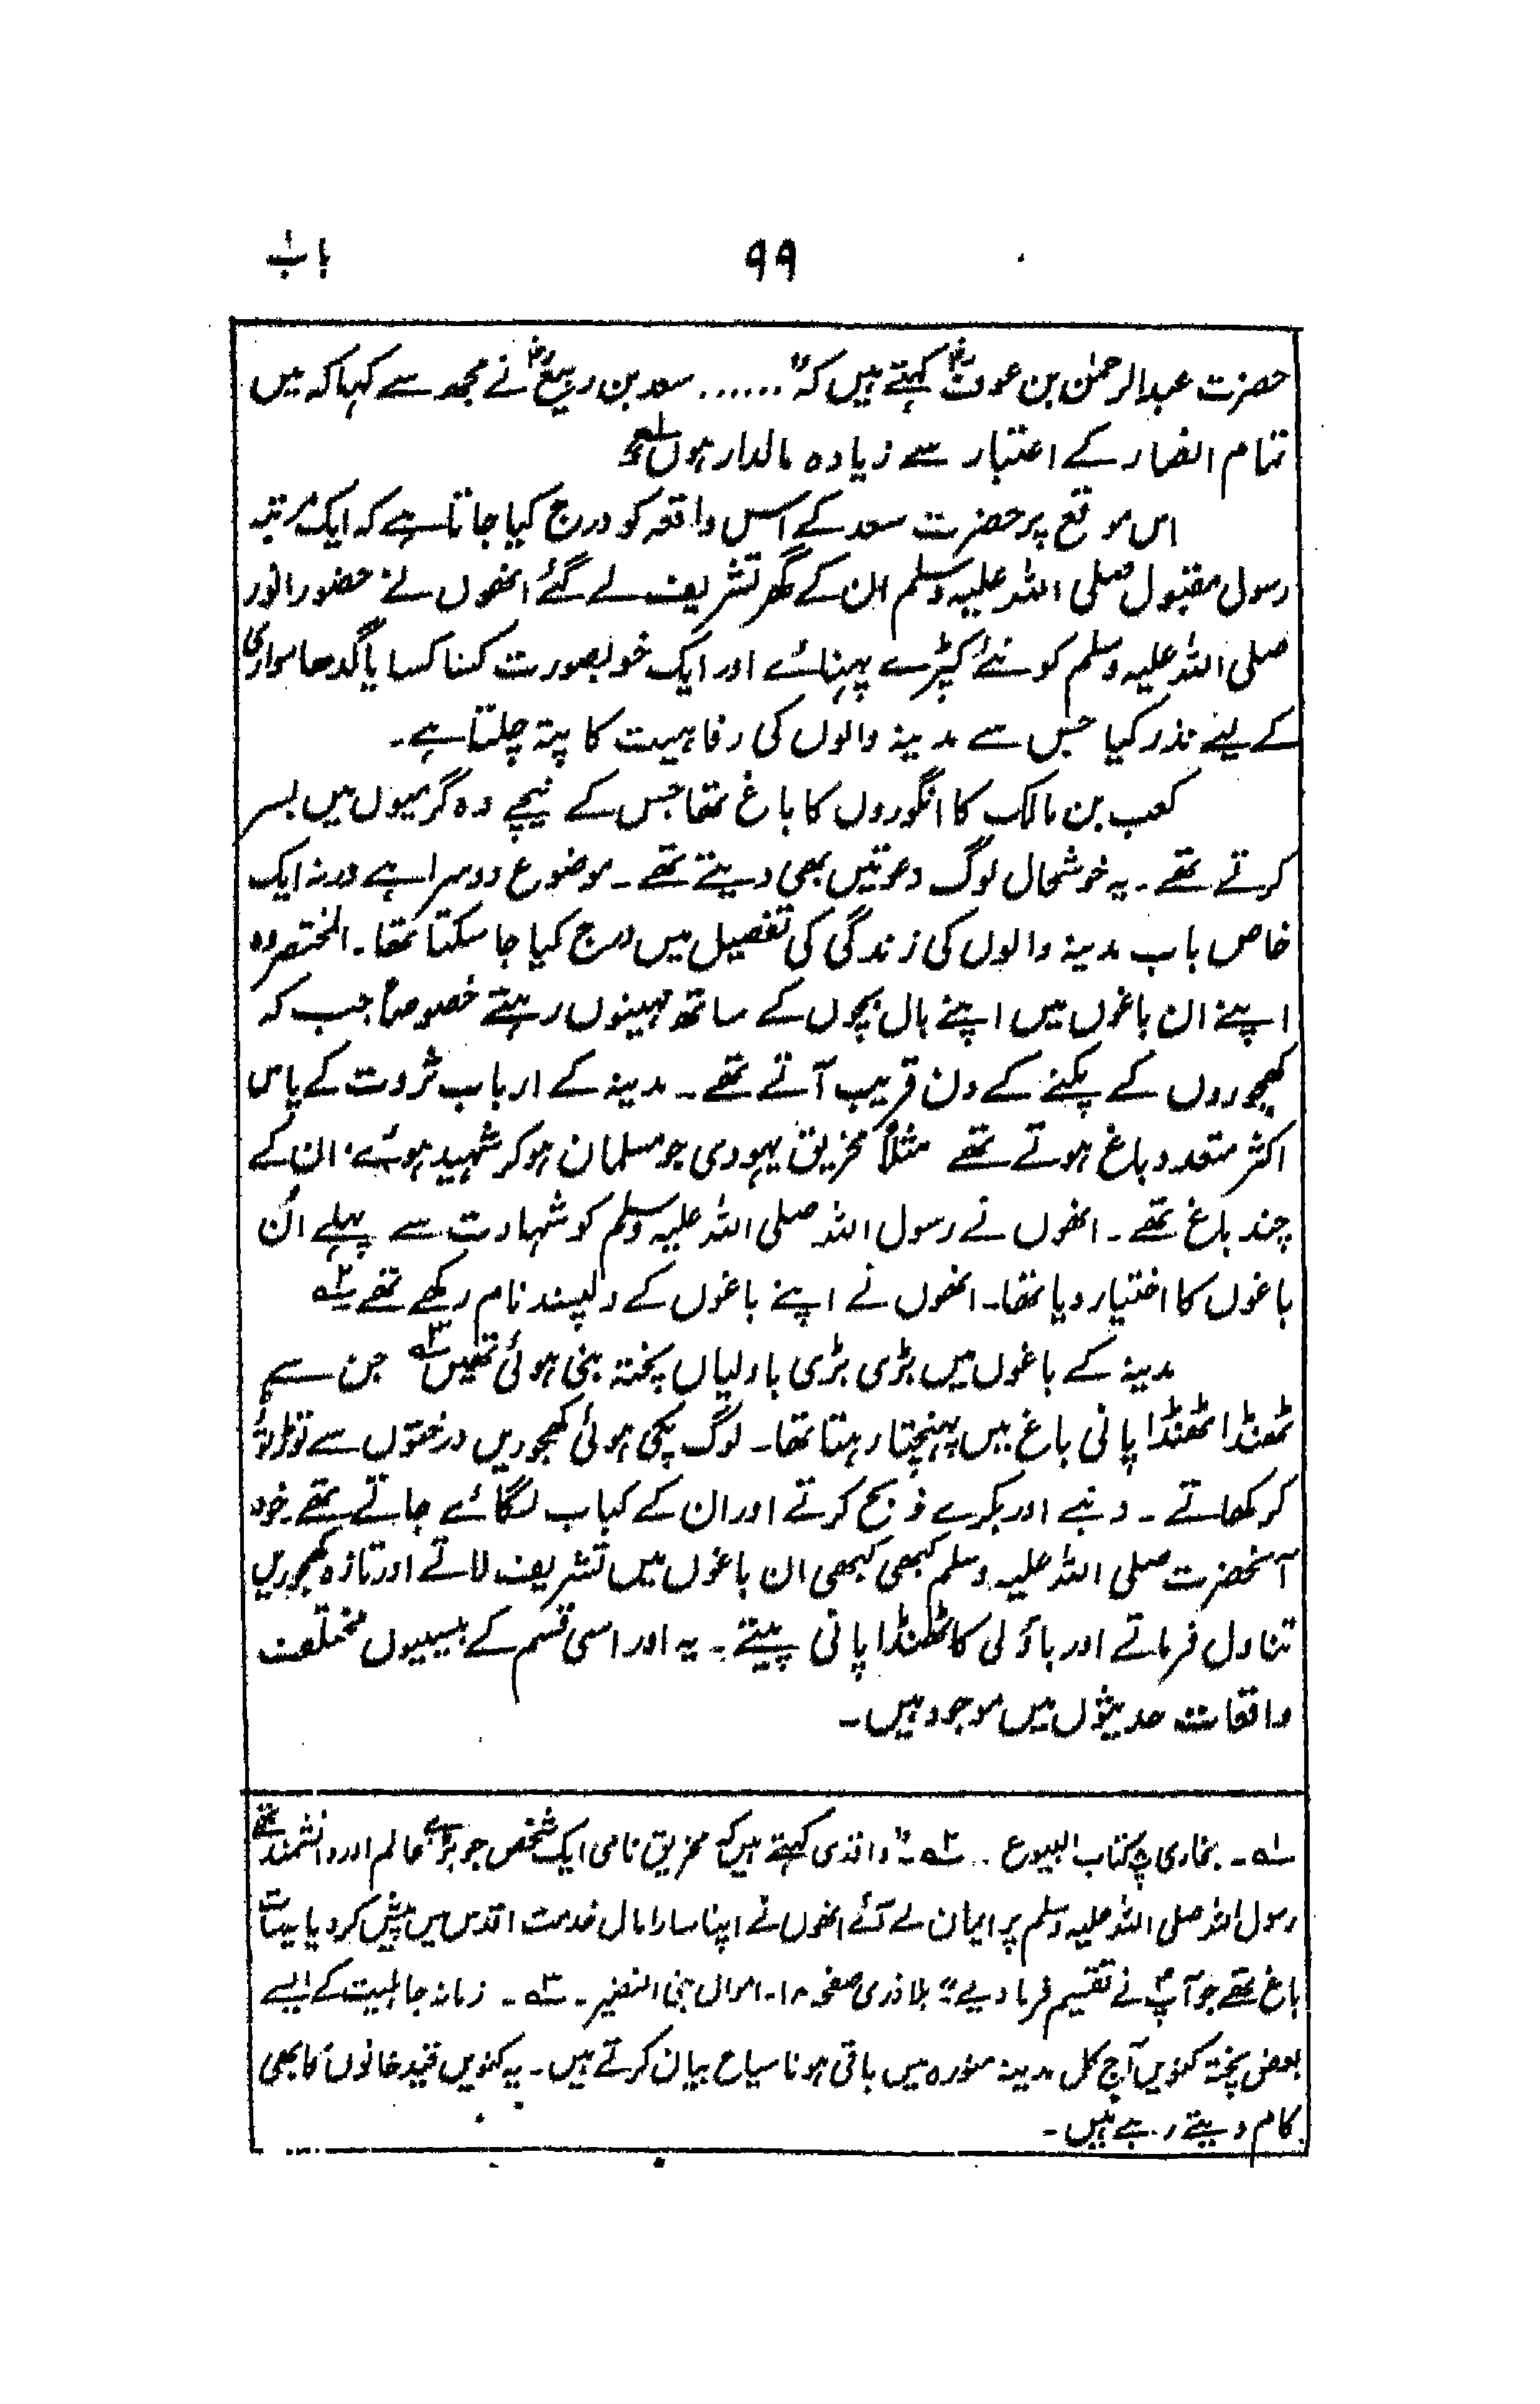 باب ۱
۹۹
حضرت عبدالرحمٰن بن عوفؓ کہتے ہیں کہ "...... سعد بن ربیعؓ نے مجھ سے کہا کہ میں
تمام انصار کے اعتبار سے زیادہ مالدار ہوں"۱؎
اس موقع پر حضرت سعد کے اس واقعہ کو درج کیا جاتا ہے کہ ایک مرتبہ
رسول مقبول صلی اللہ علیہ وسلم ان کے گھر تشریف لے گئے انھوں نے حضور انور
صلی اللہ علیہ وسلم کو نئے کپڑے پہنائے اور ایک خوبصورت کسنا کسایا گدھا سواری
کے لیے نذر کیا جس سے مدینہ والوں کی رفاہیت کا پتہ چلتا ہے۔
کعب بن مالک کا انگوروں کا باغ تھا جس کے نیچے وہ گرمیوں میں بسر
کرتے تھے۔ یہ خوشحال لوگ دعوتیں بھی دیتے تھے۔ موضوع دوسرا ہے ورنہ ایک
خاص باب مدینہ والوں کی زندگی کی تفصیل میں درج کیا جا سکتا تھا۔ المختصر وہ
اپنے ان باغوں میں اپنے بال بچوں کے ساتھ مہینوں رہتے خصوصاً جب کہ
کھجوروں کے پکنے کے دن قریب آتے تھے۔ مدینہ کے ارباب ثروت کے پاس
اکثر متعدد باغ ہوتے تھے مثلاً مخریق یہودی جو مسلمان ہو کر شہید ہوئے، ان کے
چند باغ تھے۔ انھوں نے رسول اللہ صلی اللہ علیہ وسلم کو شہادت سے پہلے اُن
باغوں کا اختیار دیا تھا۔ انھوں نے اپنے باغوں کے دلپسند نام رکھے تھے۲؎
مدینہ کے باغوں میں بڑی بڑی باولیاں پختہ بنی ہوئی تھیں۳؎ جن سے
ٹھنڈا ٹھنڈا پانی باغ میں پہنچتا رہتا تھا۔ لوگ پکی ہوئی کھجوریں درختوں سے توڑ توڑ
کر کھاتے۔ دنبے اور بکرے ذبح کرتے اور ان کے کباب لگائے جاتے تھے۔ خود
آنحضرت صلی اللہ علیہ وسلم کبھی کبھی ان باغوں میں تشریف لاتے اور تازہ کھجوریں
تناول فرماتے اور باؤلی کا ٹھنڈا پانی پیتے۔ یہ اور اسی قسم کے بیسیوں مختلف
واقعات حدیثوں میں موجود ہیں۔
۱؎۔ بخاری پ کتاب البیوع۔ ۲؎۔ "واقدی کہتے ہیں کہ مخریق نامی ایک شخص جو بڑے عالم اور دانشمند تھے
رسول اللہ صلی اللہ علیہ وسلم پر ایمان لے آئے انھوں نے اپنا سارا مال خدمت اقدس میں پیش کر دیا یہ سات
باغ تھے جو آپؐ نے تقسیم فرما دیے" بلاذری صفحہ ۱۸۔ اموال بنی النضیر۔ ۳؎۔ زمانہ جاہلیت کے ایسے
بعض پختہ کنویں آج کل مدینہ منورہ میں باقی ہونا سیاح بیان کرتے ہیں۔ یہ کنویں قید خانوں کا بھی
کام دیتے رہے ہیں۔